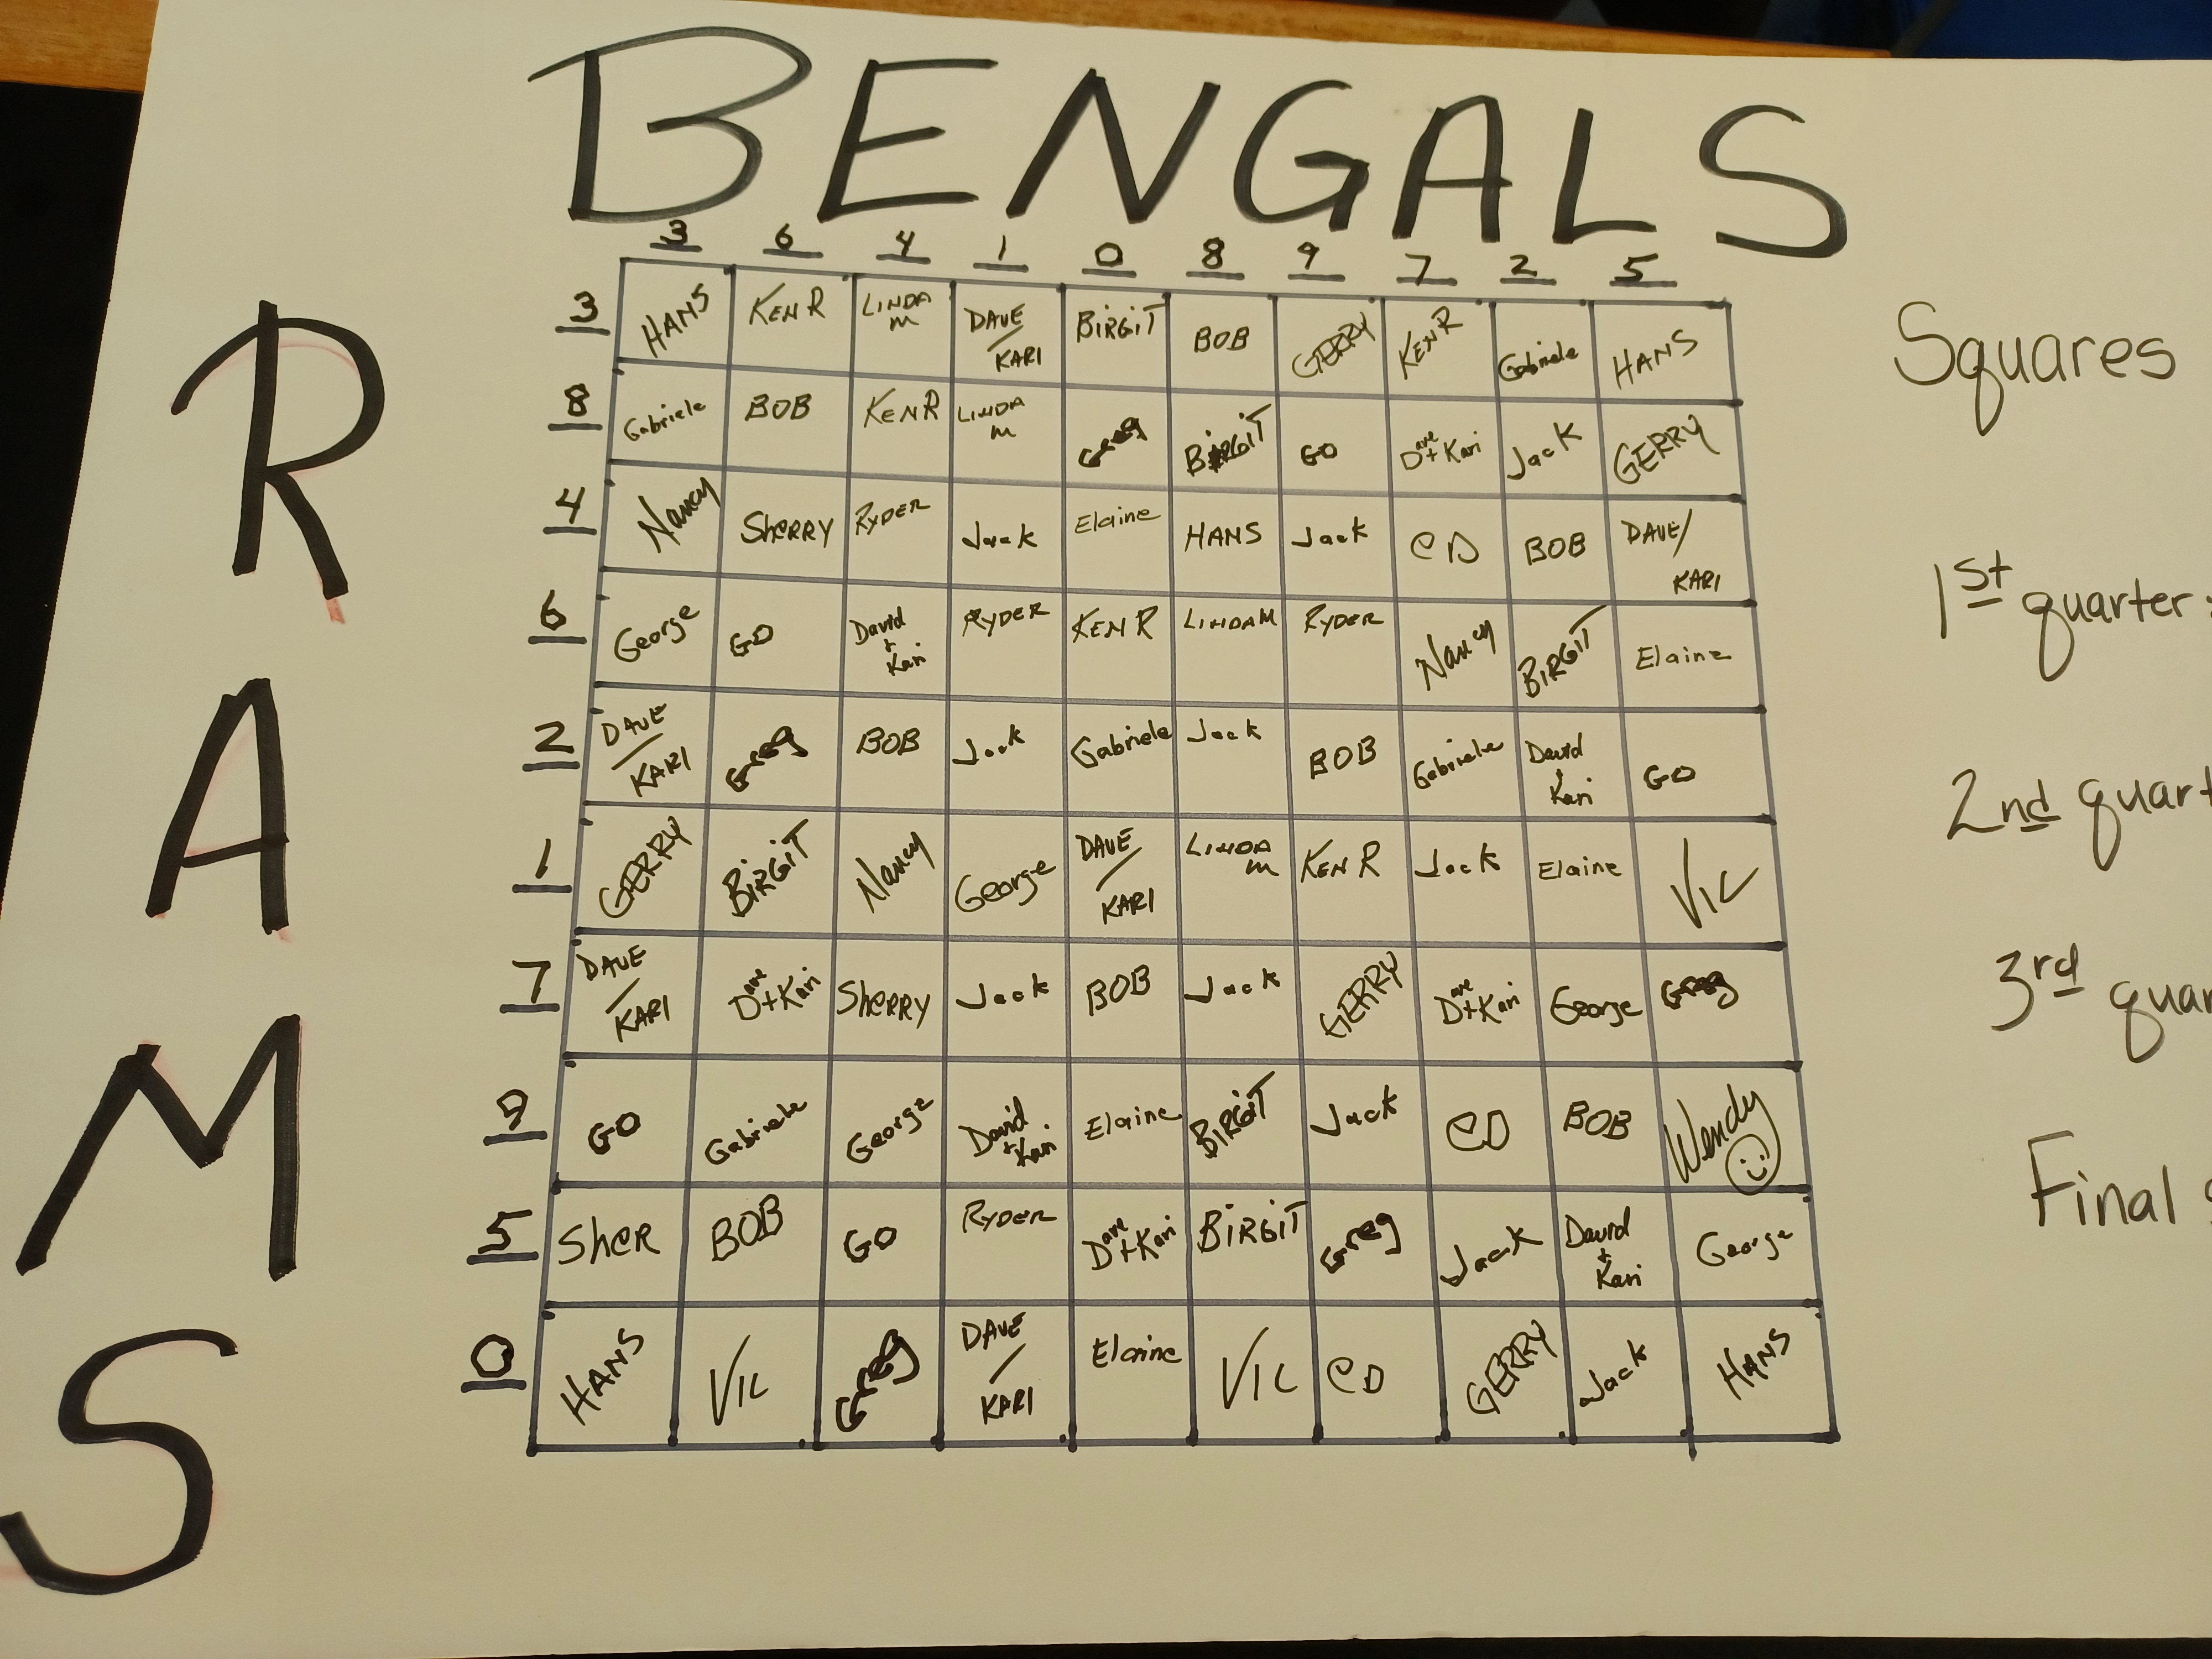 BENGALS
RAMS
3 6 4 1 0 8 9 7 2 5
3 HANS KEN R LINDA M DAVE/KARI BIRGIT BOB GERRY KEN R Gabriele HANS
8 Gabriele BOB KEN R LINDA M Greg BIRGIT GO Dave+Kari Jack GERRY
4 Nancy SHERRY RYDER Jack Elaine HANS Jack CD BOB DAVE/KARI
6 George GO David+Kari RYDER KEN R LINDA M RYDER Nancy BIRGIT Elaine
2 DAVE/KARI Greg BOB Jack Gabriele Jack BOB Gabriele David+Kari GO
1 GERRY BIRGIT Nancy George DAVE/KARI LINDA M KEN R Jack Elaine VIC
7 DAVE/KARI Dave+Kari SHERRY Jack BOB Jack GERRY Dave+Kari George Greg
9 GO Gabriele George David+Kari Elaine BIRGIT Jack CD BOB Wendy
5 SHER BOB GO RYDER Dave+Kari BIRGIT Greg Jack David+Kari George
0 HANS VIC Greg DAVE/KARI Elaine VIC CD GERRY Jack HANS
Squares
1st quarter:
2nd quart
3rd quar
Final